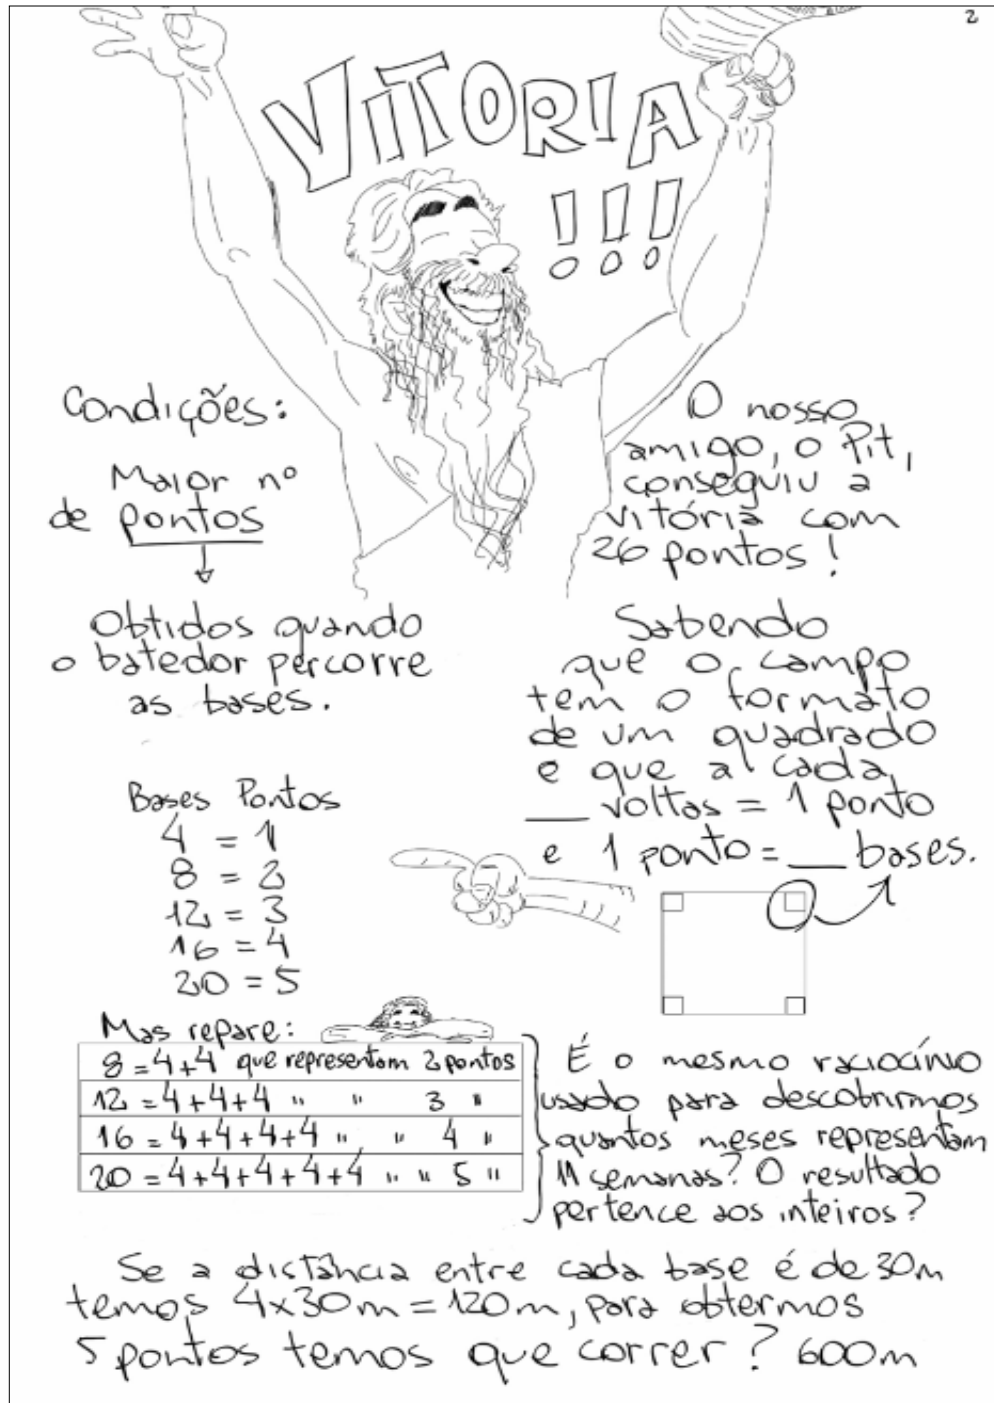 2
VITORIA
!!!
Condições:
Maior nº
de pontos
Obtidos quando
o batedor percorre
as bases.
O nosso
amigo, o Pit,
conseguiu a
vitória com
26 pontos!
Sabendo
que o campo
tem o formato
de um quadrado
e que a cada
___ voltas = 1 ponto
e 1 ponto = ___ bases.
Bases Pontos
4 = 1
8 = 2
12 = 3
16 = 4
20 = 5
Mas repare:
8 = 4+4 que representam 2 pontos
12 = 4+4+4 " " 3 "
16 = 4+4+4+4 " " 4 "
20 = 4+4+4+4+4 " " 5 "
É o mesmo raciocínio
usado para descobrirmos
quantos meses representam
11 semanas? O resultado
pertence aos inteiros?
Se a distância entre cada base é de 30m
temos 4x30m = 120m, para obtermos
5 pontos temos que correr? 600m